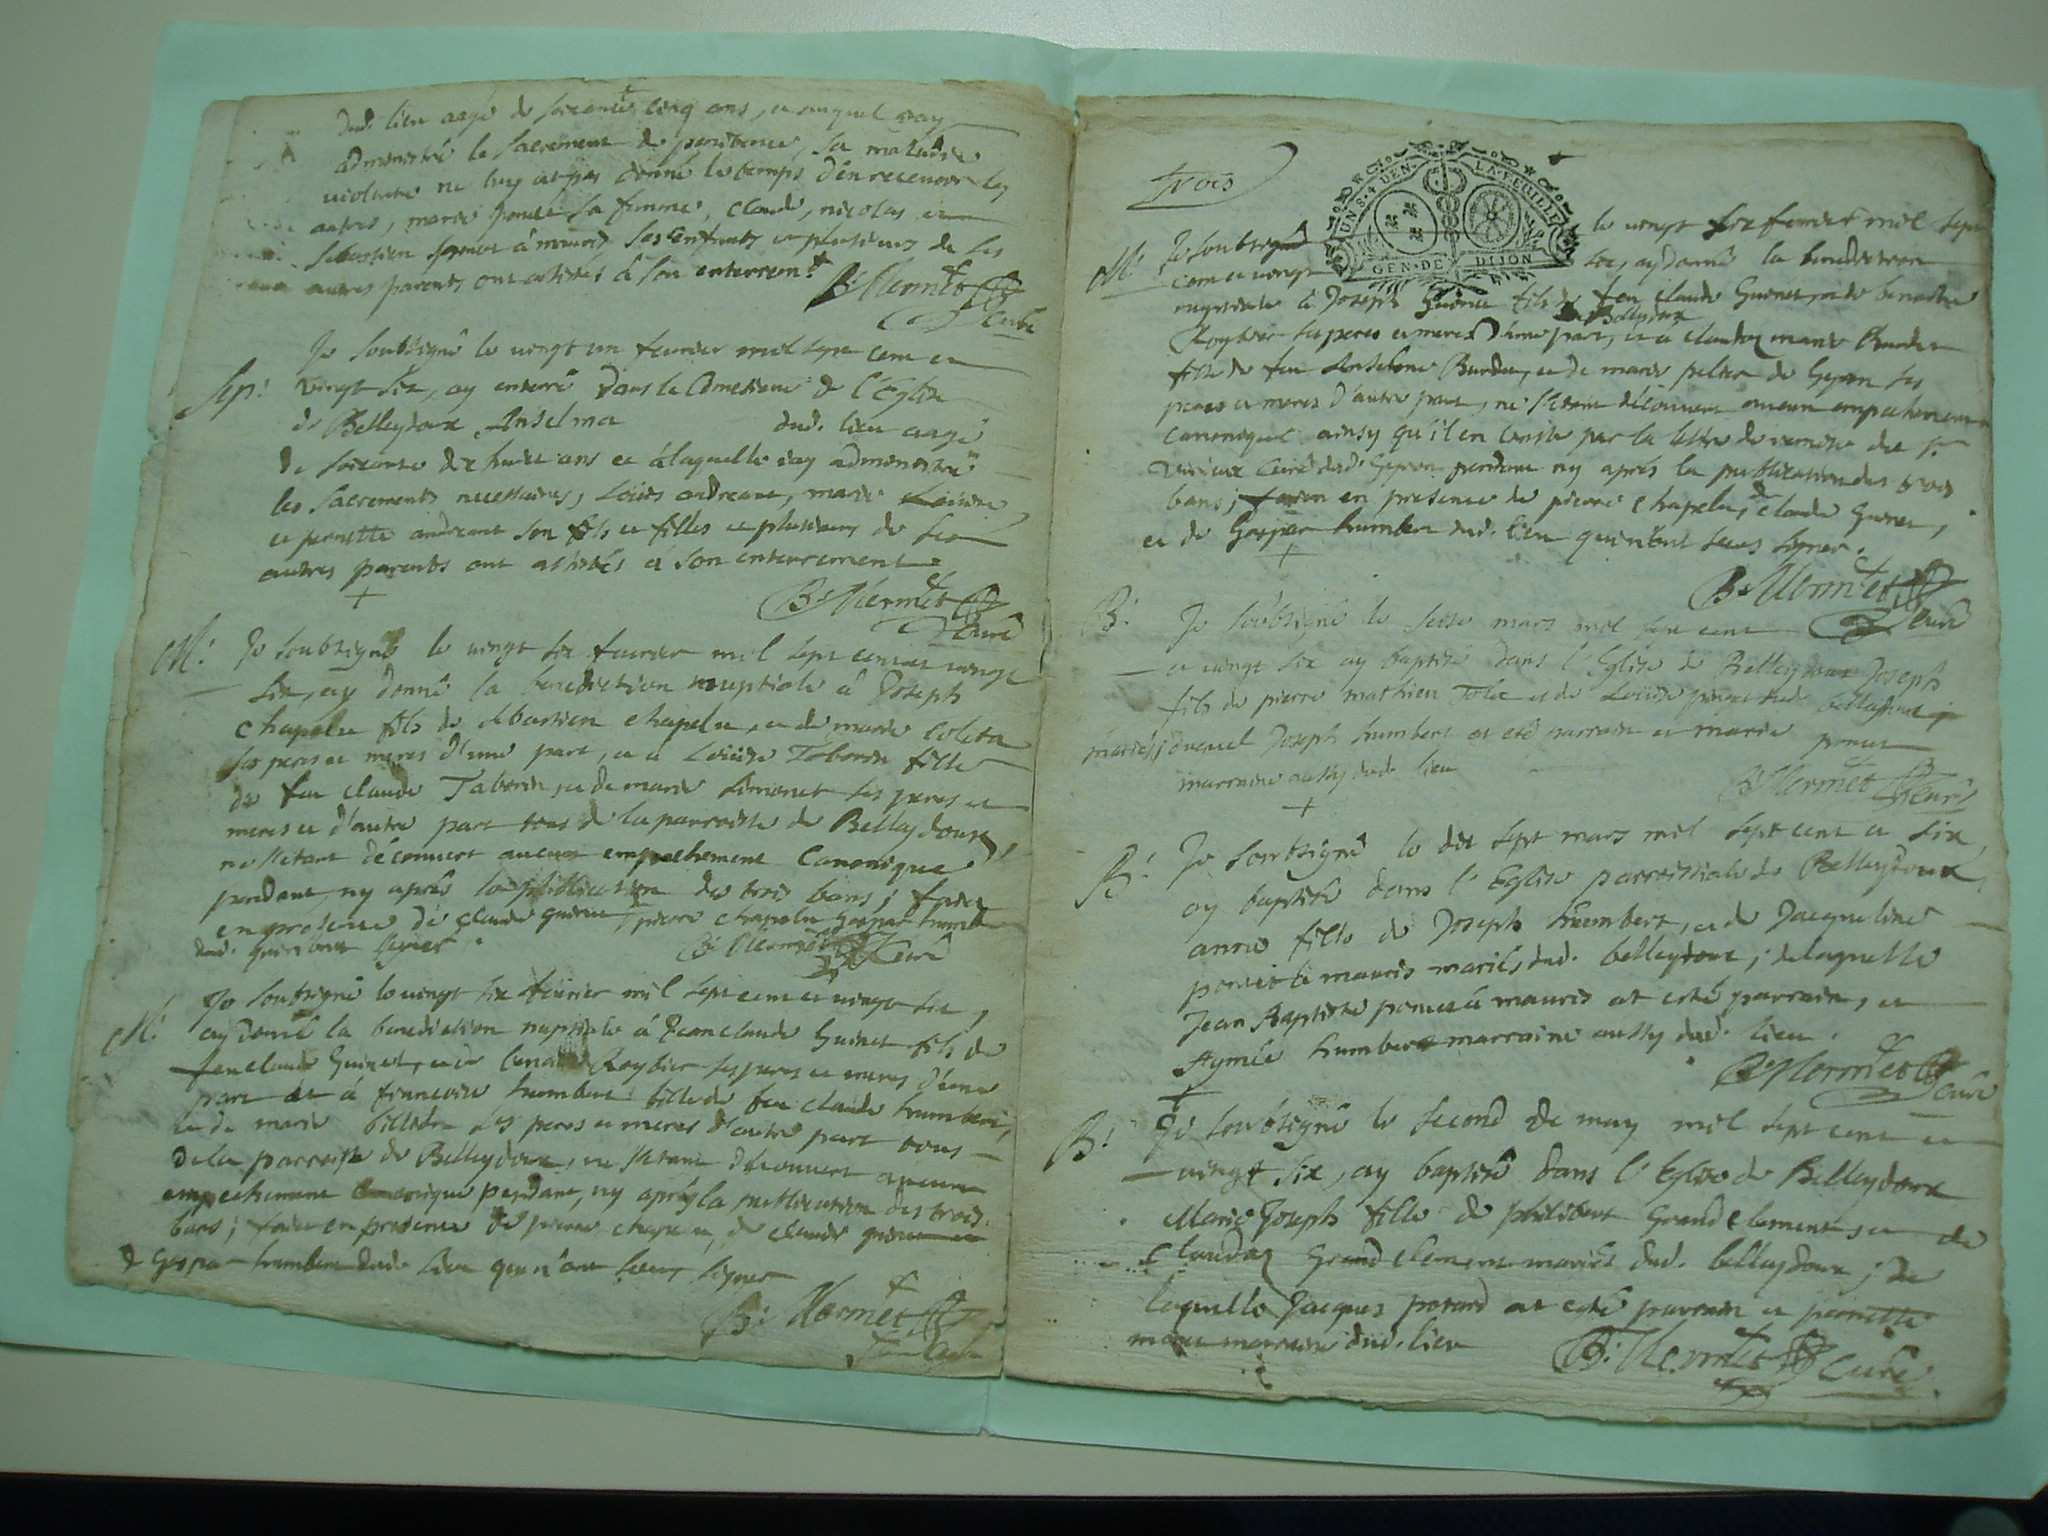 dud. lieu aagé de soixante cinq ans, et auquel j'ay
administré le sacrement de penitence, sa maladie
violente ne luy at pas donné le temps d'en recevoir les
autres, marie poncet sa femme, claude, nicolas et
sebastien poncet à mauris ses enfants et plusieurs de ses
autres parents ont assistés à son enterremt
B: Mermet
curé
Je soubsigné le vingt un fevrier mil sept cent et
Sep: vingt six, ay enterré dans le Cimetiere de l'Eglise
de Belleydoux Anselma dud. lieu aagé
de soixante dix huit ans et à laquelle j'ay administré
les sacrements necessaires, Loüis andreant, marie
et pernette andreant son fils et filles et plusieurs de ses
autres parents ont assistés à son enterrement.
B: Mermet
Curé
M: Je soubsigné le vingt six fevrier mil sept cent et vingt
six, ay donné la benediction nuptiale à Joseph
chapelu fils de sebastien chapelu, et de marie Coleta
ses peres et meres d'une part, et à Loüise Taborin fille
de feu claude Taborin, et de marie simonet ses peres et
meres et d'autre part tous de la parroisse de Belleydoux,
ne s'etant découvert aucun empechement Canonique
pendant, ny après la publication des trois bans; faite
en presence de claude guinet, pierre chapelu Gaspar humbert
dud. qui n'ont signer.
B: Mermet curé
Je soubsigné le vingt six fevrier mil sept cent et vingt six,
M: ay donné la benediction nuptiale à Jean claude Guinet fils de
feu claude Guinet, et de benoite Roybier ses peres et meres d'une
part et à francoise humbert fille de feu claude humbert,
et de marie billet ses peres et meres d'autre part tous
de la parroisse de Belleydoux, ne s'etant découvert aucun
empechement Canonique pendant, ny après la publication des trois
bans; faite en presence de pierre chapelu, de claude guinet et
de Gaspar humbert dud. lieu qui n'ont sceus signer
B: Mermet
Curé
Trois
UN S. 4 DEN. LA FEUILLE
GEN. DE DIJON
M: Je soubsigné le vingt six fevrier mil sept
cent et vingt six, ay donné la benediction
nuptiale à Joseph Guinet fils de feu claude Guinet, et de benoite
de Belleydoux
Roybier ses peres et meres d'une part, et à claudaz marie Burdet
fille de feu Anselme Burdet, et de marie de Gepon ses
peres et meres d'autre part, ne s'etant découvert aucun empechement
canonique ainsy qu'il en conste par la lettre de remise du Sr.
Curé dud. Gepon pendant ny après la publication des trois
bans; faite en presence de pierre chapelu, de claude Guinet,
et de Gaspar humbert dud. lieu qui n'ont sceus signer.
B: Mermet
Curé
B: Je soubsigné le seize mars mil sept cent
et vingt six ay baptisé dans l'Eglise de Belleydoux Joseph
fils de pierre mathieu et de Loüise poncet dud. belleydoux
mariés; duquel Joseph humbert at eté parrain et marie poncet
marraine aussy dud. lieu
B: Mermet
Curé
Je soubsigné le dix sept mars mil sept cent et six,
B: ay baptisé dans l'Eglise parroissiale de Belleydoux,
anne fille de Joseph humbert, et de Jacqueline
poncet à mauris mariés dud. belleydoux; de laquelle
Jean Baptiste poncet à mauris at eté parrain, et
Aymée humbert marraine aussy dud. lieu.
B: Mermet
Curé
B: Je soubsigné le second de may mil sept cent et
vingt six, ay baptisé dans l'Eglise de Belleydoux
Marie Joseph fille de philibert Grand clement, et de
Claudaz Grand clement mariés dud. belleydoux; de
laquelle Jacques at eté parrain et pernette
marraine dud. lieu
B: Mermet
Curé